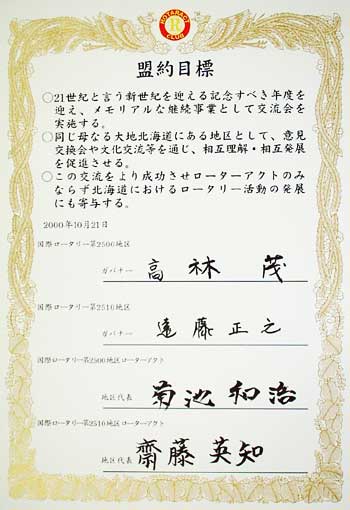 ROTARACT
R
CLUB
盟約目標
○21世紀と言う新世紀を迎える記念すべき年度を
迎え、メモリアルな継続事業として交流会を
実施する。
○同じ母なる大地北海道にある地区として、意見
交換会や文化交流等を通じ、相互理解・相互発展
を促進させる。
○この交流をより成功させローターアクトのみ
ならず北海道におけるロータリー活動の発展
にも寄与する。
2000年10月21日
国際ロータリー第2500地区
ガバナー 高林 茂
国際ロータリー第2510地区
ガバナー 遠藤正之
国際ロータリー第2500地区ローターアクト
地区代表 菊池和治
国際ロータリー第2510地区ローターアクト
地区代表 齋藤英知